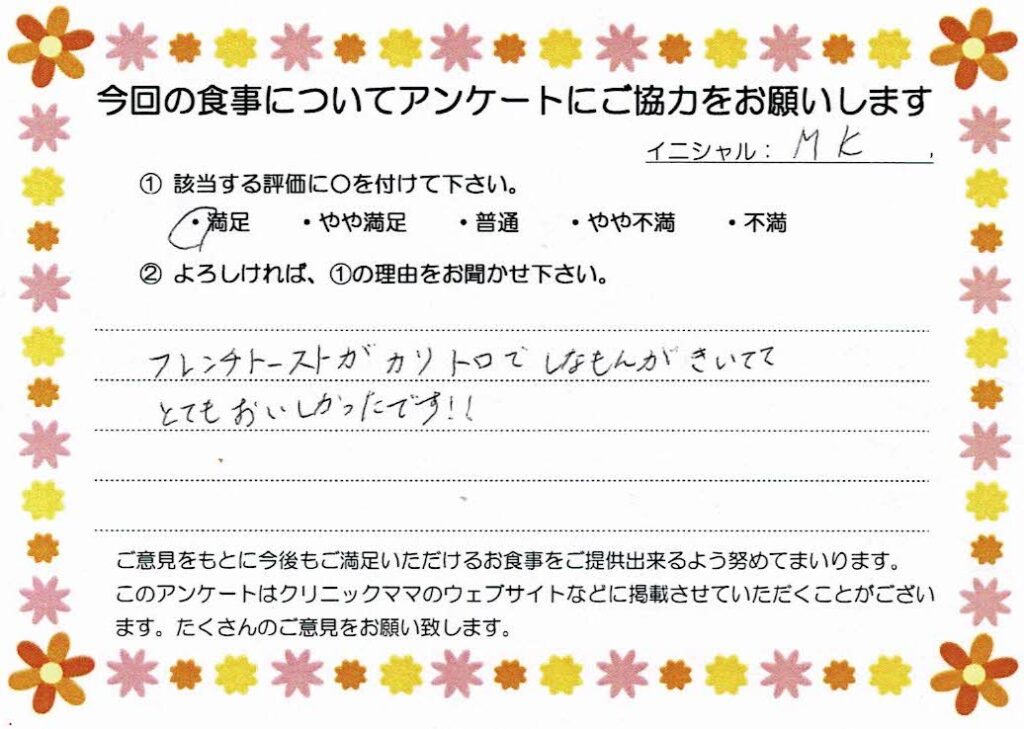 今回の食事についてアンケートにご協力をお願いします
イニシャル： MK
① 該当する評価に〇を付けて下さい。
・満足 ・やや満足 ・普通 ・やや不満 ・不満
② よろしければ、①の理由をお聞かせ下さい。
フレンチトーストがカリトロでしなもんがきいてて
とてもおいしかったです!!
ご意見をもとに今後もご満足いただけるお食事をご提供出来るよう努めてまいります。
このアンケートはクリニックママのウェブサイトなどに掲載させていただくことがござい
ます。たくさんのご意見をお願い致します。